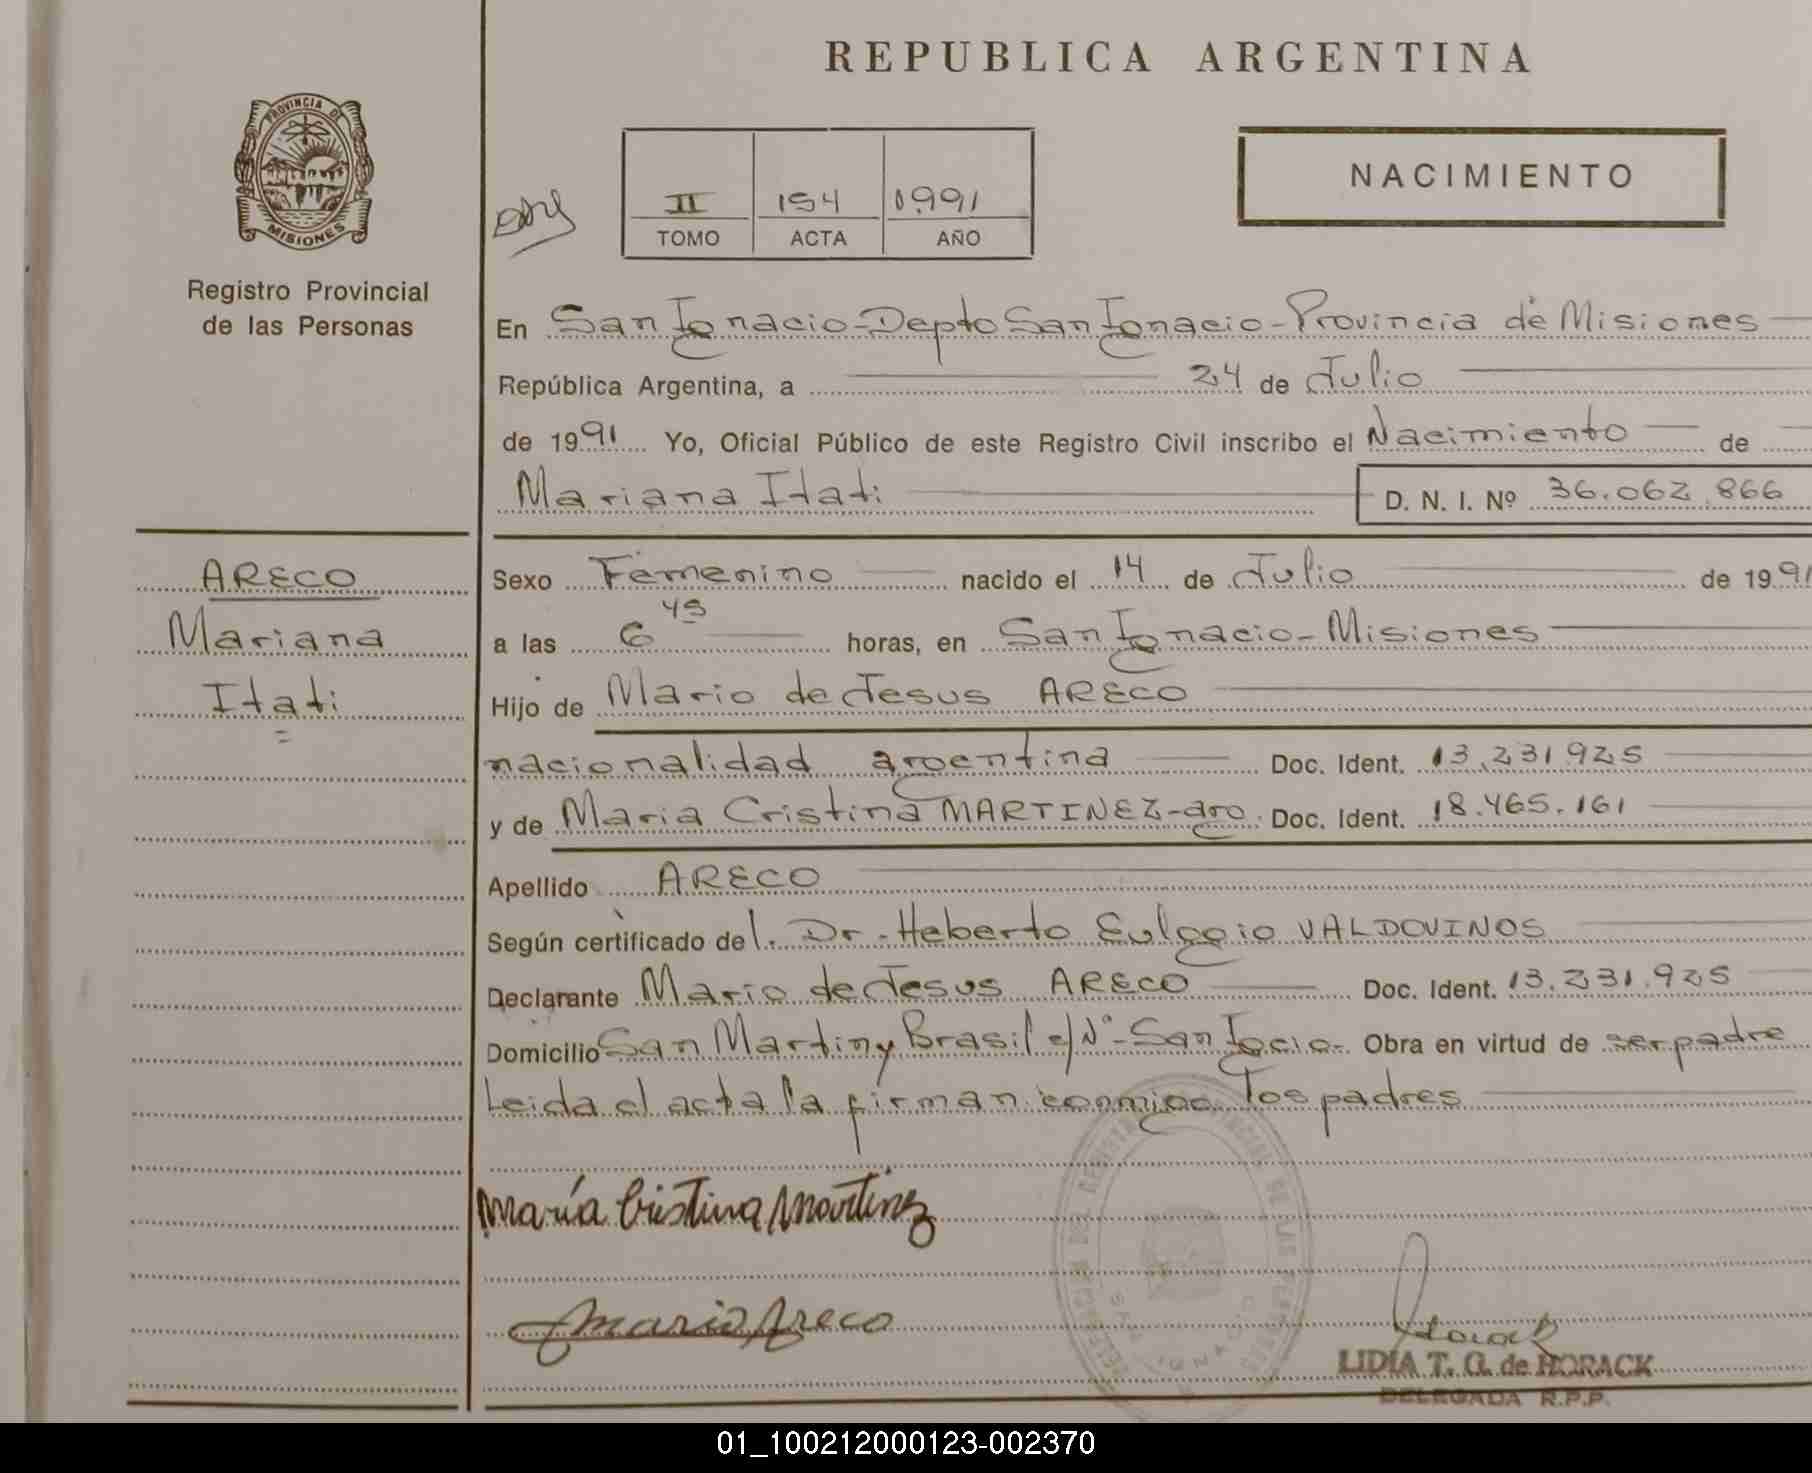 REPUBLICA ARGENTINA
PROVINCIA DE
MISIONES
NACIMIENTO
II 154 1991
TOMO ACTA AÑO
Registro Provincial
de las Personas
En San Ignacio-Depto San Ignacio-Provincia de Misiones
República Argentina, a 24 de Julio
de 1991 Yo, Oficial Público de este Registro Civil inscribo el Nacimiento de
Mariana Itati D. N. I. Nº 36.062.866
ARECO
Mariana
Itati
Sexo Femenino nacido el 14 de Julio de 1991
a las 6 45 horas, en San Ignacio-Misiones
Hijo de Mario de Jesus ARECO
nacionalidad argentina Doc. Ident. 13.231.925
y de Maria Cristina MARTINEZ-arg. Doc. Ident. 18.465.161
Apellido ARECO
Según certificado del. Dr. Heberto Eulogio VALDOVINOS
Declarante Mario de Jesus ARECO Doc. Ident. 13.231.925
Domicilio San Martin y Brasil s/Nº-San Igcio- Obra en virtud de ser padre
Leida el acta la firman conmigo los padres
María Cristina Martinez
Mario Areco
Horack
LIDIA T. G. de HORACK
DELEGADA R.P.P.
SAN IGNACIO
01_100212000123-002370